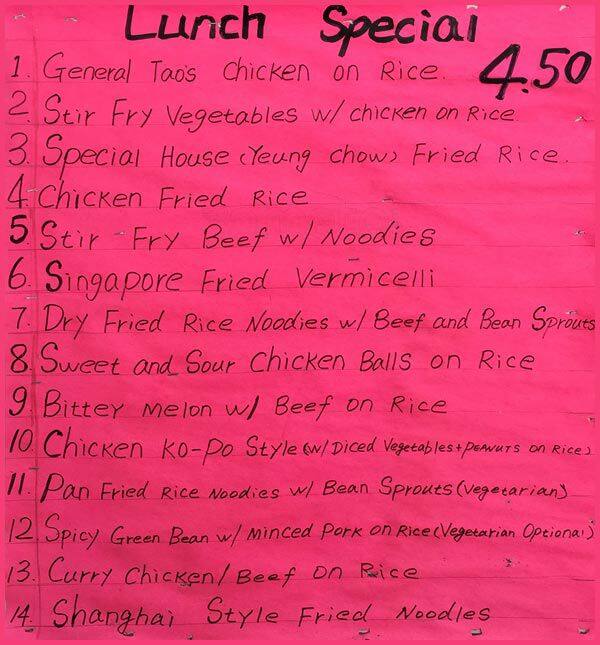 Lunch Special
4.50
1. General Tao's Chicken on Rice.
2. Stir Fry Vegetables w/ chicken on Rice
3. Special House (Yeung chow) Fried Rice.
4. Chicken Fried Rice
5. Stir-Fry Beef w/ Noodies
6. Singapore Fried Vermicelli
7. Dry Fried Rice Noodies w/ Beef and Bean Sprouts
8. Sweet and Sour Chicken Balls on Rice
9. Bitter Melon w/ Beef on Rice
10. Chicken Ko-Po Style (w/ Diced Vegetables + Peanuts on Rice)
11. Pan Fried Rice Noodies w/ Bean Sprouts (Vegetarian)
12. Spicy Green Bean w/ minced Pork on Rice (Vegetarian Optional)
13. Curry Chicken/Beef on Rice
14. Shanghai Style Fried Noodles